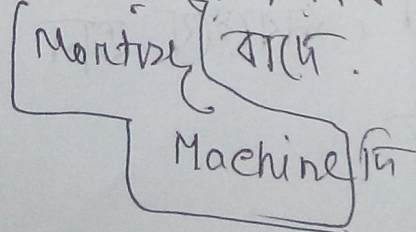 Mortise বাদে.
Machine টি